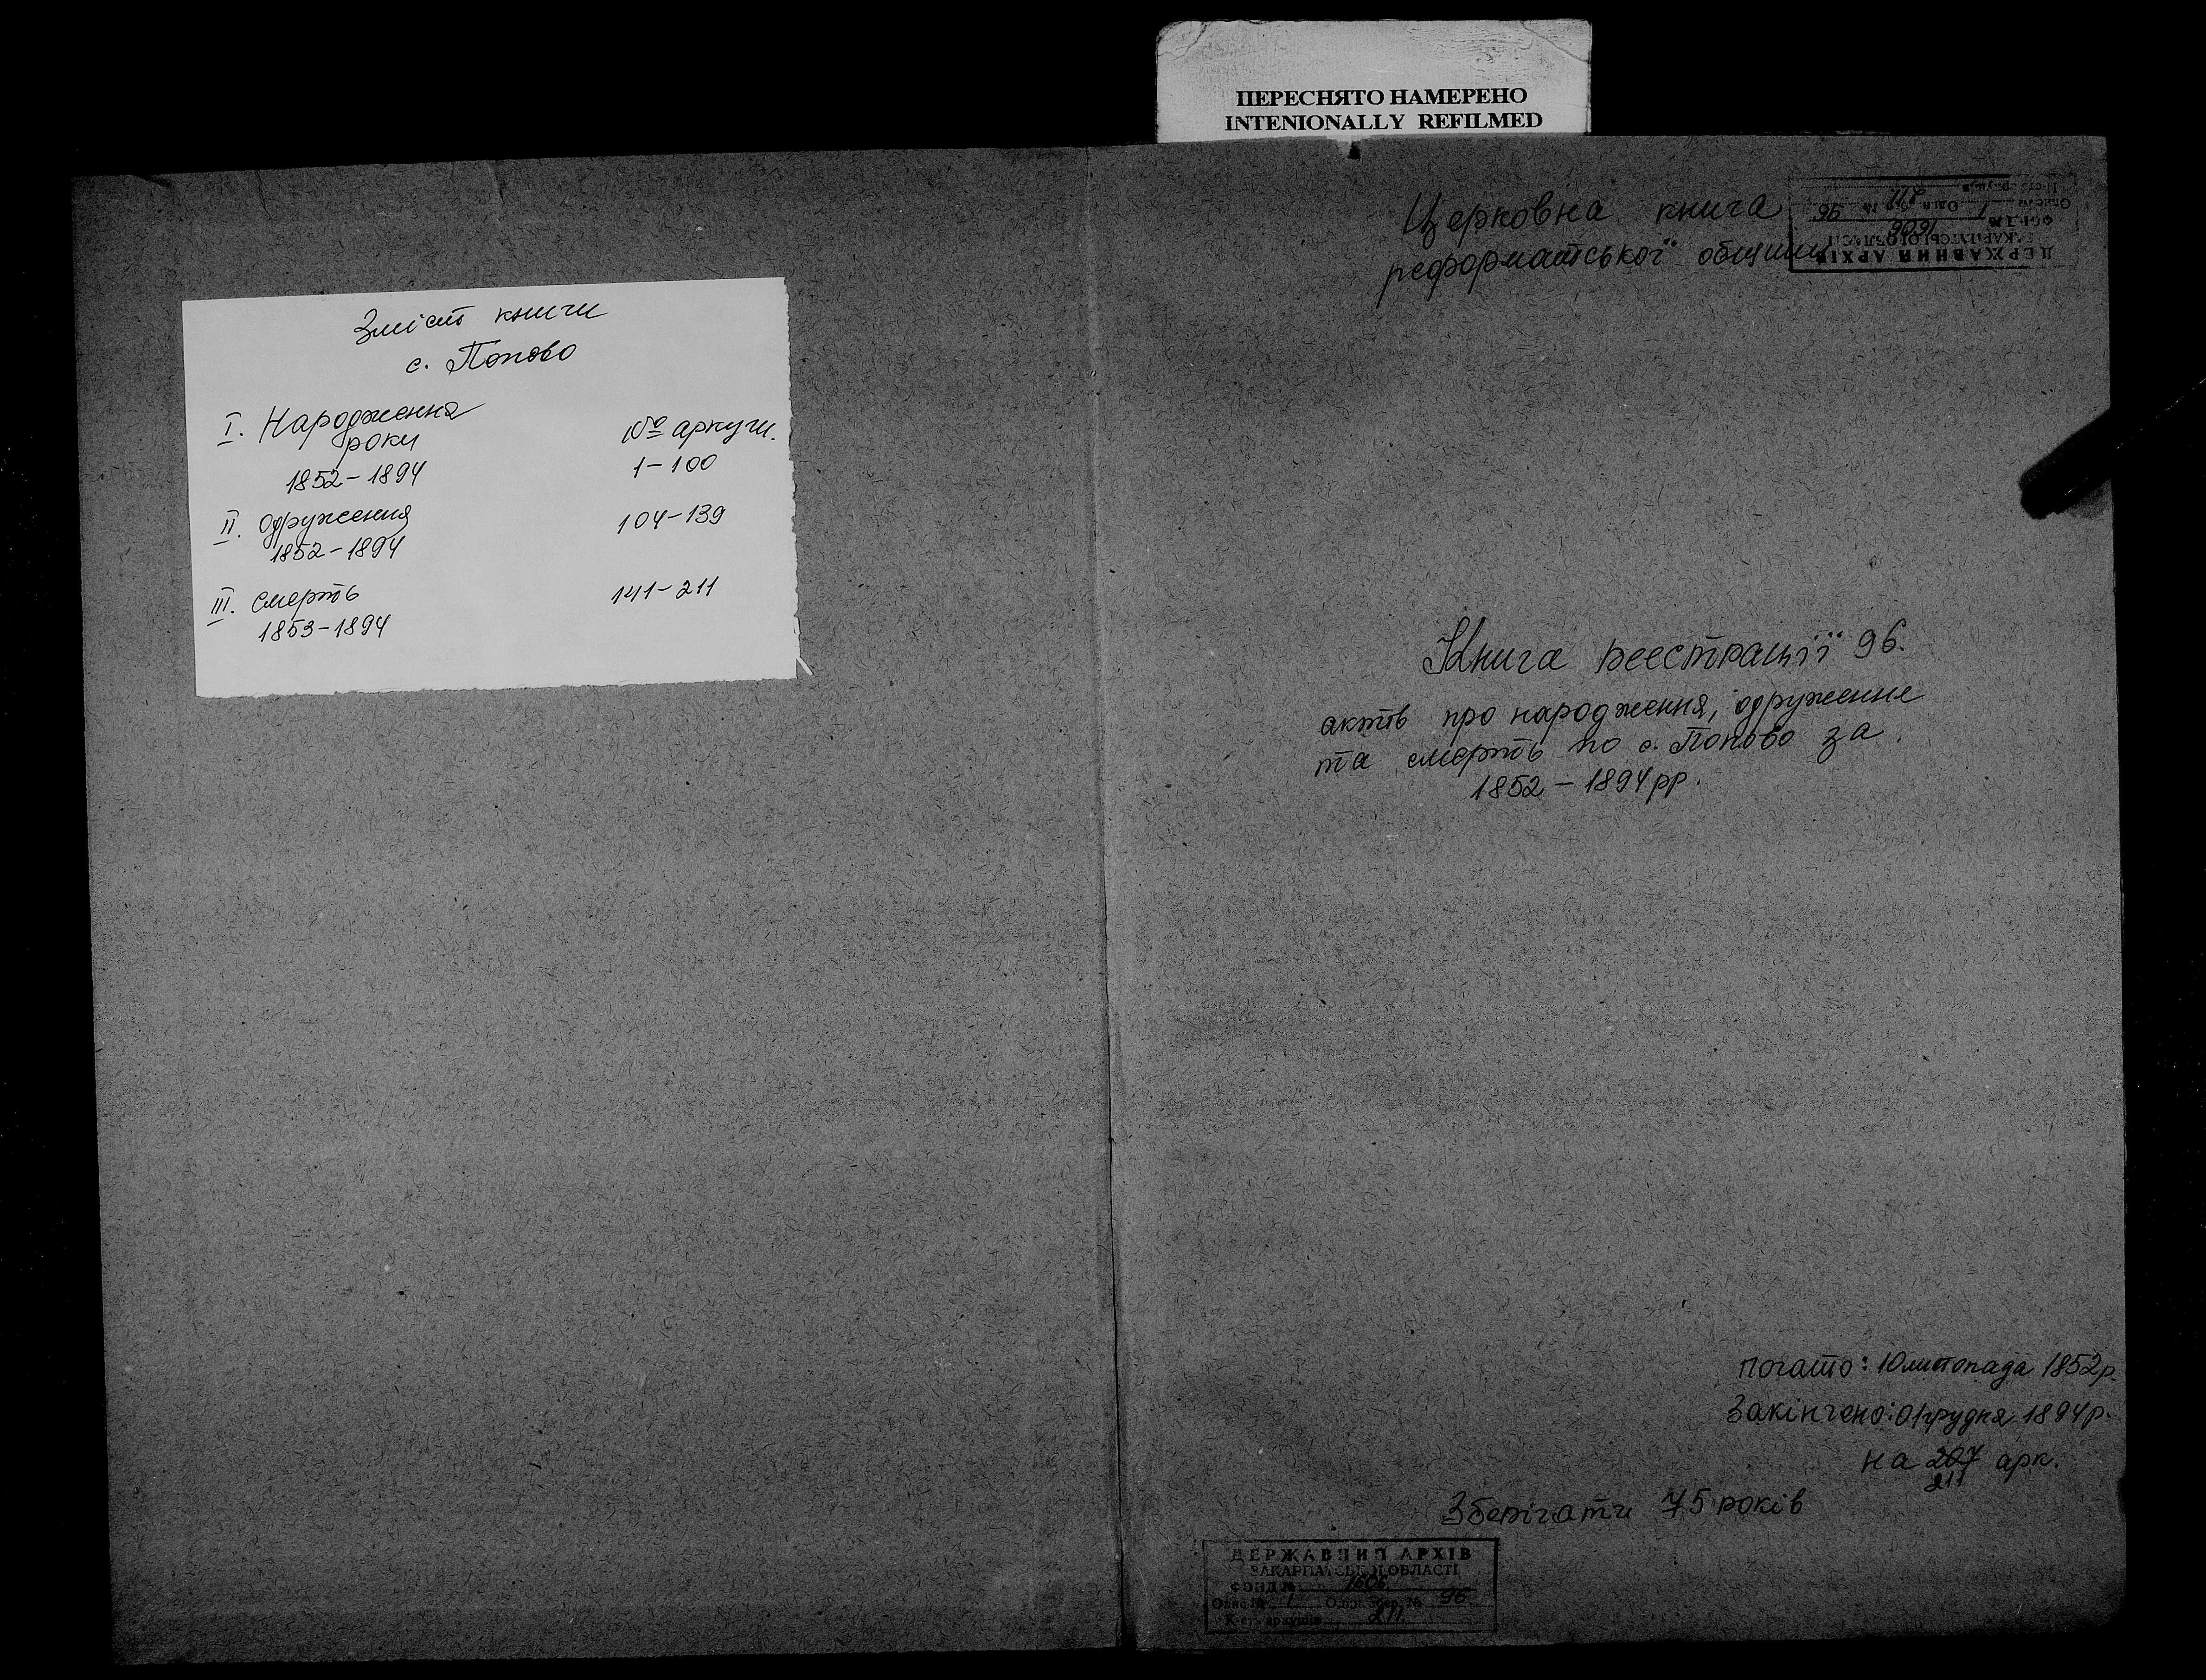 ПЕРЕСНЯТО НАМЕРЕНО
INTENIONALLY REFILMED
Зміст книги
с. Попово
I. Народження № аркуш.
роки
1852-1894 1-100
II. одруження 104-139
1852-1894
III. смерть 141-211
1853-1894
Церковна книга
реформатської общини
ДЕРЖАВНИЙ АРХІВ
ЗАКАРПАТСЬКОЇ ОБЛАСТІ
ФОНД № 1606
Опис № 1 Один. збер. № 96
К-сть аркушів 211
Книга реєстрації 96.
актів про народження, одруження
та смерть по с. Попово за
1852 - 1894 рр.
почато: 10 листопада 1852 р.
Закінчено: 01 грудня 1894 р.
на 207 арк.
211
Зберігати 75 років
ДЕРЖАВНИЙ АРХІВ
ЗАКАРПАТСЬКОЇ ОБЛАСТІ
ФОНД № 1606
Опис № 1 Один. збер. № 96
К-сть аркушів 211